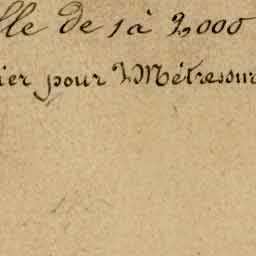 lle de 1 à 2,000
ier pour 2 Mètres sur